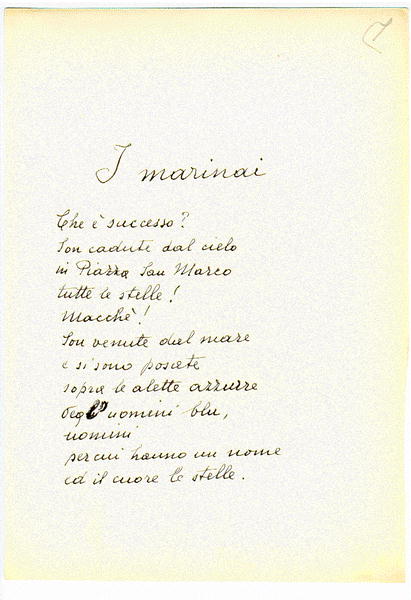 7
I marinai
Che è successo?
Son cadute dal cielo
in Piazza San Marco
tutte le stelle!
Macchè!
Son venute dal mare
e si sono posate
sopra le alette azzurre
degli uomini blu,
uomini
per cui hanno un nome
ed il cuore le stelle.